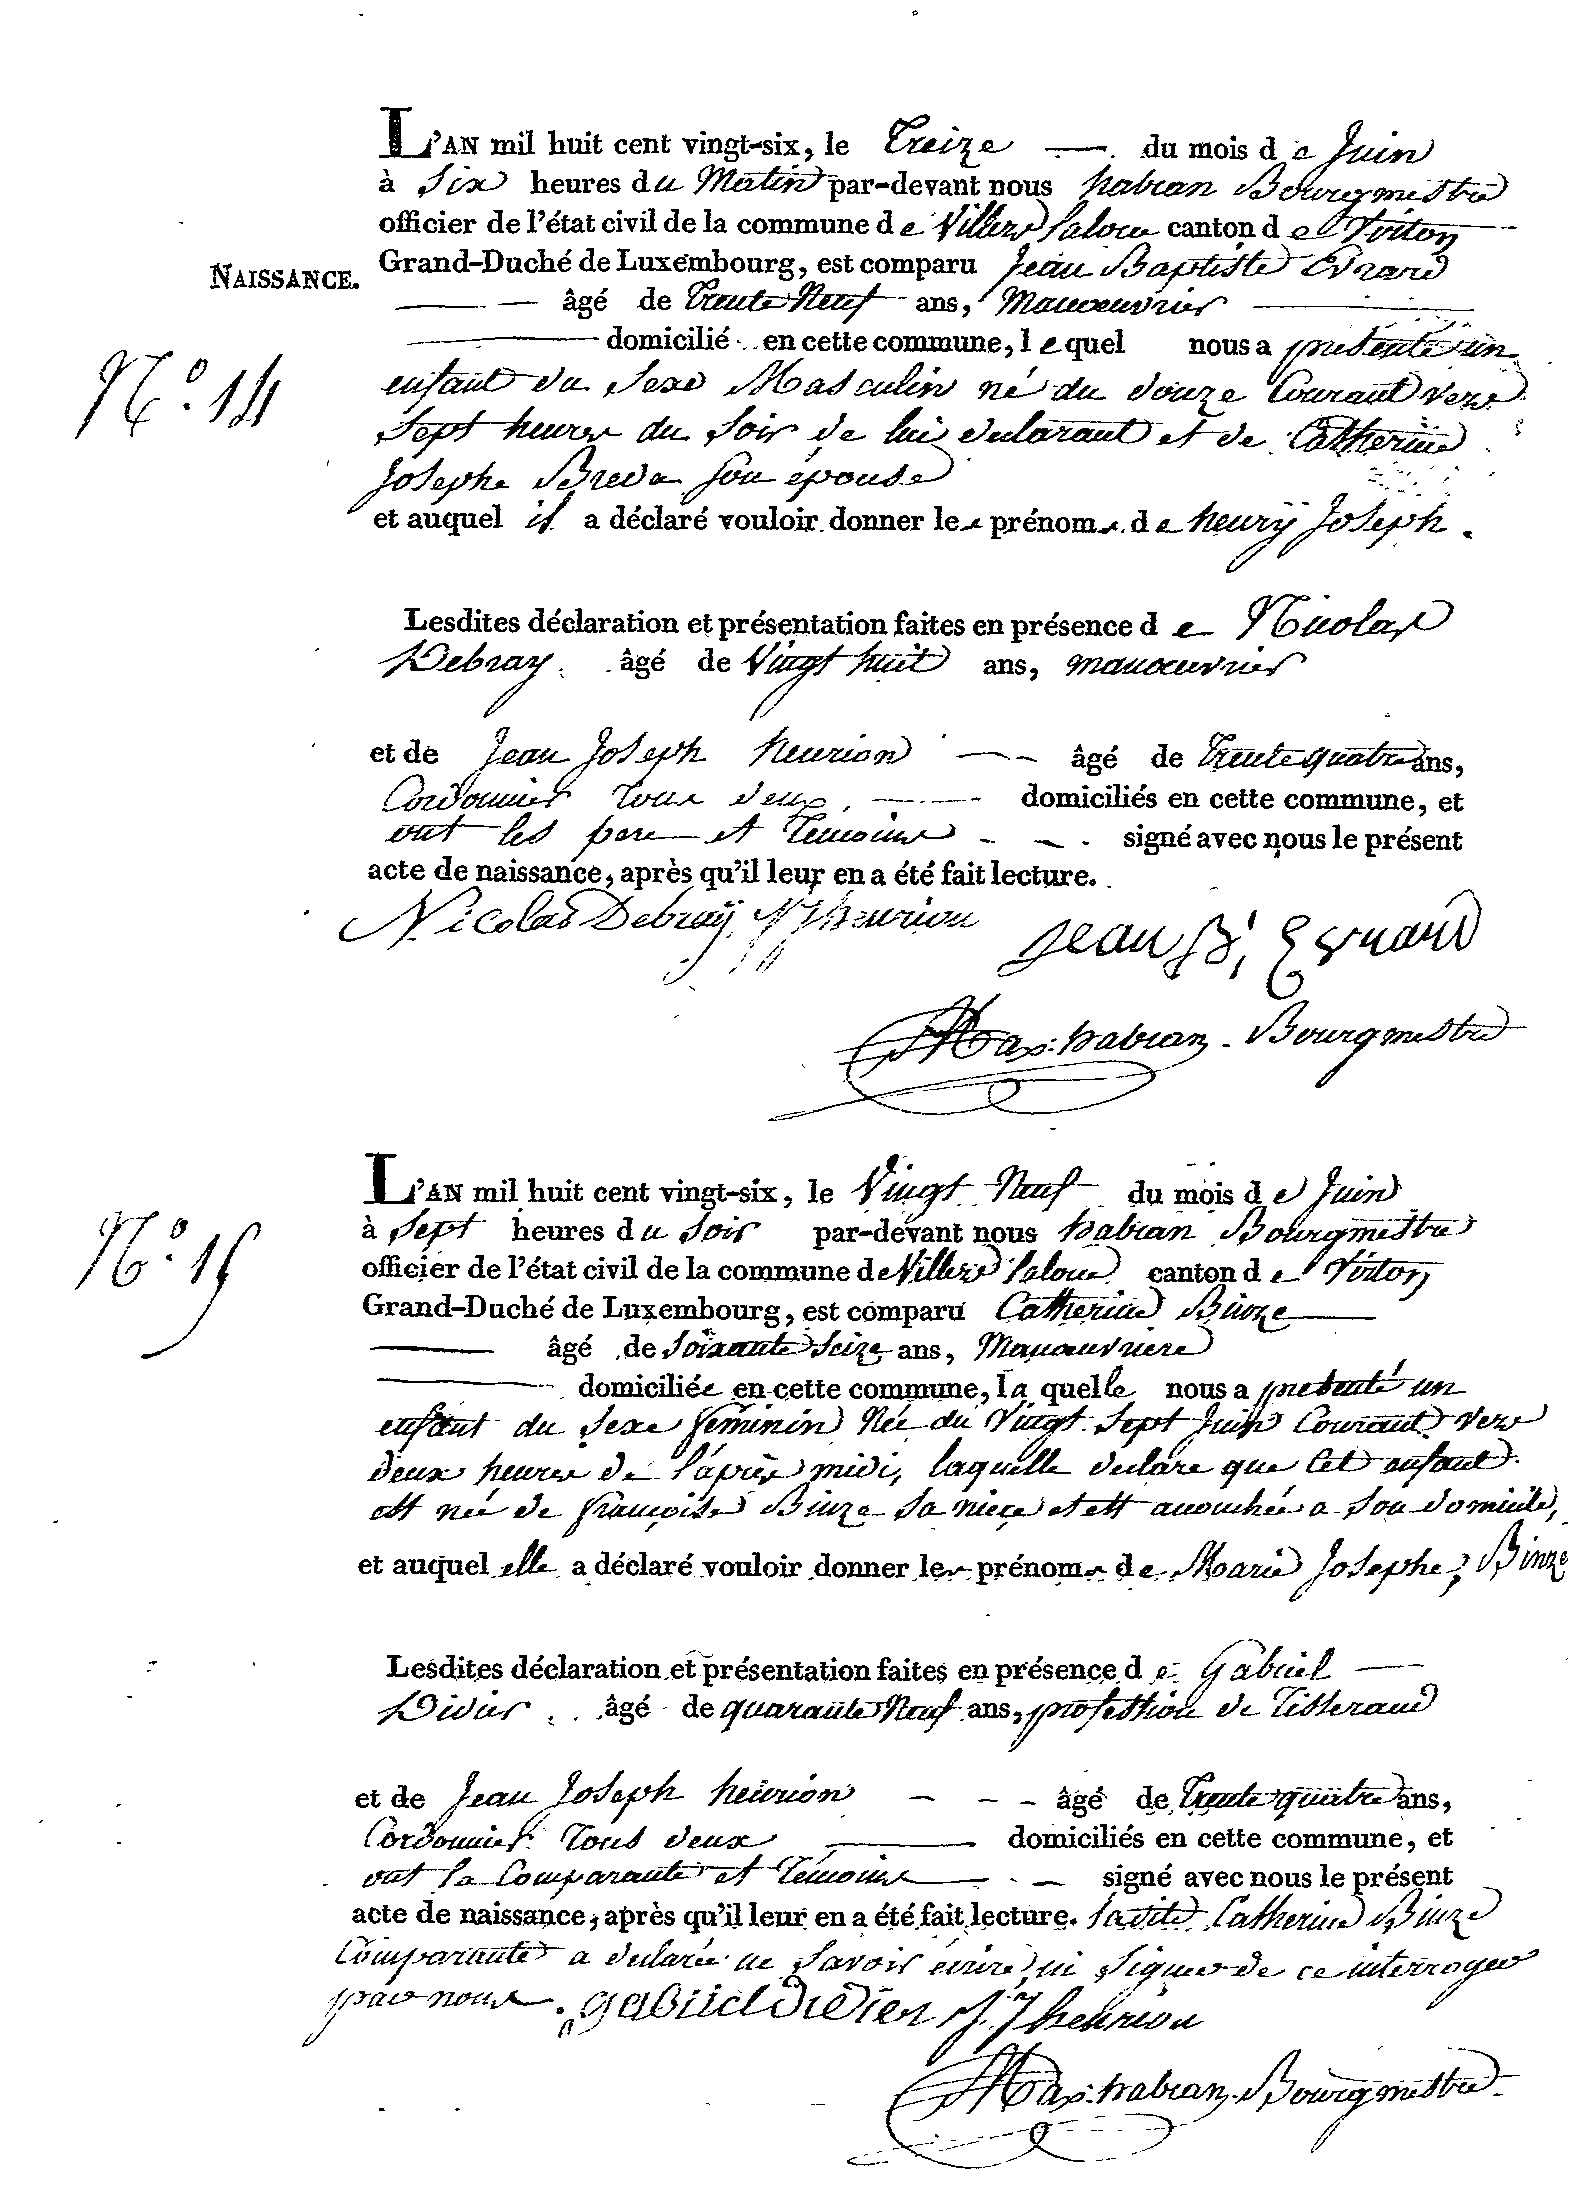 L'AN mil huit cent vingt-six, le Treize du mois de Juin
à Six heures du Matin par-devant nous habran Bourgmestre
officier de l'état civil de la commune de Villers saloue canton de Virton
NAISSANCE.
Grand-Duché de Luxembourg, est comparu Jean Baptiste Evrard
âgé de Trente Neuf ans, Manoeuvrier
domicilié en cette commune, lequel nous a présenté un
N.º 14
enfant du Sexe Masculin né du douze Courant vers
Sept heures du Soir de lui declarant et de Catherine
Josephe Breda son épouse
et auquel il a déclaré vouloir donner les prénoms de henry Joseph.
Lesdites déclaration et présentation faites en présence de Nicolas
Debray âgé de Vingt huit ans, manoeuvrier
et de Jean Joseph henrion âgé de Trente quatre ans,
Cordonnier Tous deux domiciliés en cette commune, et
ont les pere et Temoins signé avec nous le présent
acte de naissance, après qu'il leur en a été fait lecture.
Nicolas Debray JJ henrion Jean B. Evrard
Max: habran Bourgmestre
L'AN mil huit cent vingt-six, le Vingt Neuf du mois de Juin
à Sept heures du Soir par-devant nous habran Bourgmestre
N.º 15
officier de l'état civil de la commune de Villers saloue canton de Virton
Grand-Duché de Luxembourg, est comparu Catherine Binze
âgé de Soixante Seize ans, Manoeuvriere
domiciliée en cette commune, laquelle nous a présenté un
enfant du Sexe feminin Née du Vingt Sept Juin Courant vers
deux heures de l'après midi, laquelle declare que Cet enfant
est née de françoise Binze Sa niece et est accouchée a Son domicile,
et auquel elle a déclaré vouloir donner les prénoms de Marie Josephe, Binze
Lesdites déclaration et présentation faites en présence de Gabriel
Didier âgé de quarante Neuf ans, profession de Tisserand
et de Jean Joseph henrion âgé de Trente quatre ans,
Cordonnier Tous deux domiciliés en cette commune, et
ont la Comparante et Témoins signé avec nous le présent
acte de naissance, après qu'il leur en a été fait lecture. ladite Catherine Binze
Comparante a declarée ne Savoir écrire ni Signer de ce interroger
par nous. gabriel didier J.J henrion
Max: habran Bourgmestre